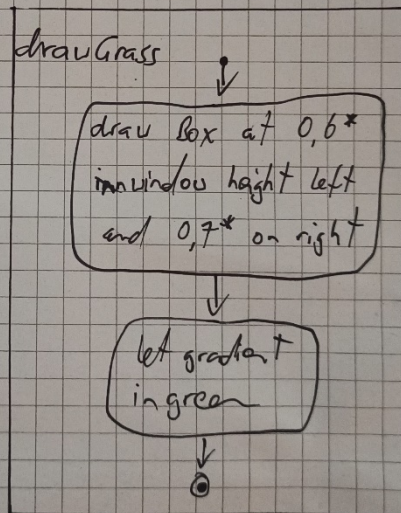 drawGrass
draw Box at 0,6*
innwindow height left
and 0,7* on right
let gradient
in green